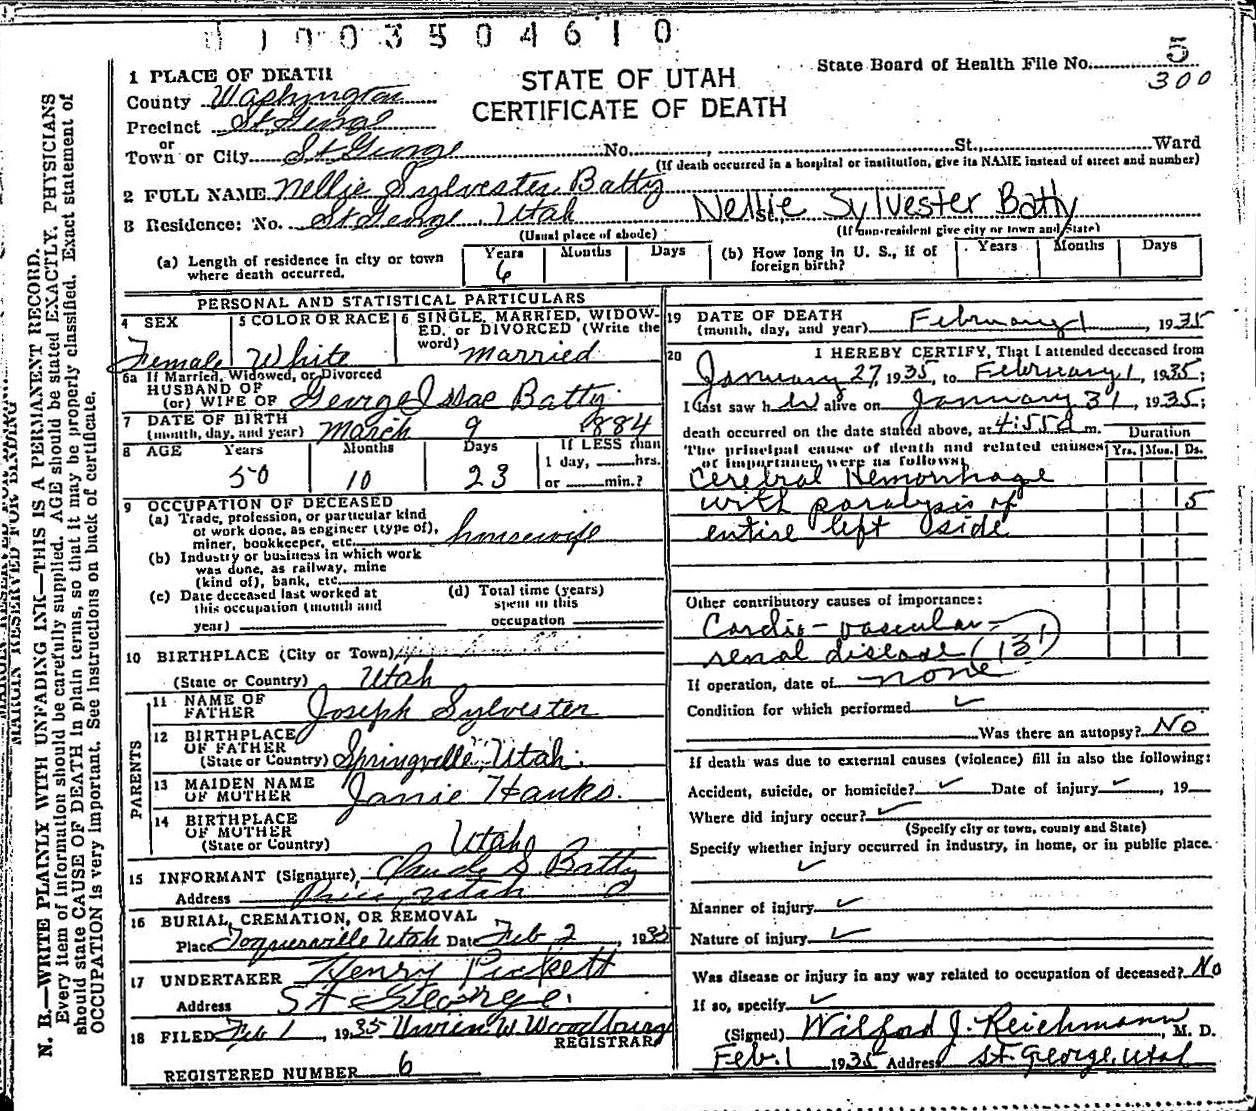 1003504610
STATE OF UTAH
CERTIFICATE OF DEATH
State Board of Health File No. 5
300
MARGIN RESERVED FOR BINDING
N. B.—WRITE PLAINLY WITH UNFADING INK—THIS IS A PERMANENT RECORD.
Every item of information should be carefully supplied. AGE should be stated EXACTLY. PHYSICIANS
should state CAUSE OF DEATH in plain terms, so that it may be properly classified. Exact statement of
OCCUPATION is very important. See instructions on back of certificate.
1 PLACE OF DEATH
County Washington
Precinct St George
or
Town or City St George No. , St., Ward
(If death occurred in a hospital or institution, give its NAME instead of street and number)
2 FULL NAME Nellie Sylvester Batty
Nellie Sylvester Batty
3 Residence: No. St George, Utah
(Usual place of abode) (If non-resident give city or town and State)
(a) Length of residence in city or town where death occurred. Years 6 Months Days
(b) How long in U. S., if of foreign birth? Years Months Days
PERSONAL AND STATISTICAL PARTICULARS
4 SEX Female
5 COLOR OR RACE White
6 SINGLE, MARRIED, WIDOWED, or DIVORCED (Write the word) Married
6a If Married, Widowed, or Divorced
HUSBAND OF
(or) WIFE OF George Isac Batty
7 DATE OF BIRTH
(month, day, and year) March 9 1884
8 AGE Years Months Days If LESS than
50 10 23 1 day, hrs.
or min.?
9 OCCUPATION OF DECEASED
(a) Trade, profession, or particular kind
of work done, as engineer (type of),
miner, bookkeeper, etc. housewife
(b) Industry or business in which work
was done, as railway, mine
(kind of), bank, etc.
(c) Date deceased last worked at
this occupation (month and
year)
(d) Total time (years)
spent in this
occupation
10 BIRTHPLACE (City or Town)
(State or Country) Utah
PARENTS
11 NAME OF
FATHER Joseph Sylvester
12 BIRTHPLACE
OF FATHER
(State or Country) Springville, Utah.
13 MAIDEN NAME
OF MOTHER Janie Hanks.
14 BIRTHPLACE
OF MOTHER
(State or Country) Utah
15 INFORMANT (Signature) Claude S. Batty
Address Price, Utah
16 BURIAL, CREMATION, OR REMOVAL
Place Toquerville Utah Date Feb 2, 1935
17 UNDERTAKER Henry Pickett
Address St George.
18 FILED Feb 1, 1935 Vivien W Woodbury
REGISTRAR
REGISTERED NUMBER 6
19 DATE OF DEATH
(month, day, and year) February 1, 1935
20 I HEREBY CERTIFY, That I attended deceased from
January 27, 1935, to February 1, 1935;
I last saw her alive on January 31, 1935;
death occurred on the date stated above, at 4:55 a m.
The principal cause of death and related causes
of importance were as follows: Duration Yrs. Mos. Ds.
Cerebral Hemorrhage
with paralysis of 5
entire left side
Other contributory causes of importance:
Cardio-vascular-
renal disease (131)
If operation, date of none
Condition for which performed ✓
Was there an autopsy? No
If death was due to external causes (violence) fill in also the following:
Accident, suicide, or homicide? ✓ Date of injury ✓, 19
Where did injury occur? ✓
(Specify city or town, county and State)
Specify whether injury occurred in industry, in home, or in public place.
✓
Manner of injury ✓
Nature of injury ✓
Was disease or injury in any way related to occupation of deceased? No
If so, specify ✓
(Signed) Wilford J. Reichmann, M. D.
Feb. 1 1935 Address St. George, Utah